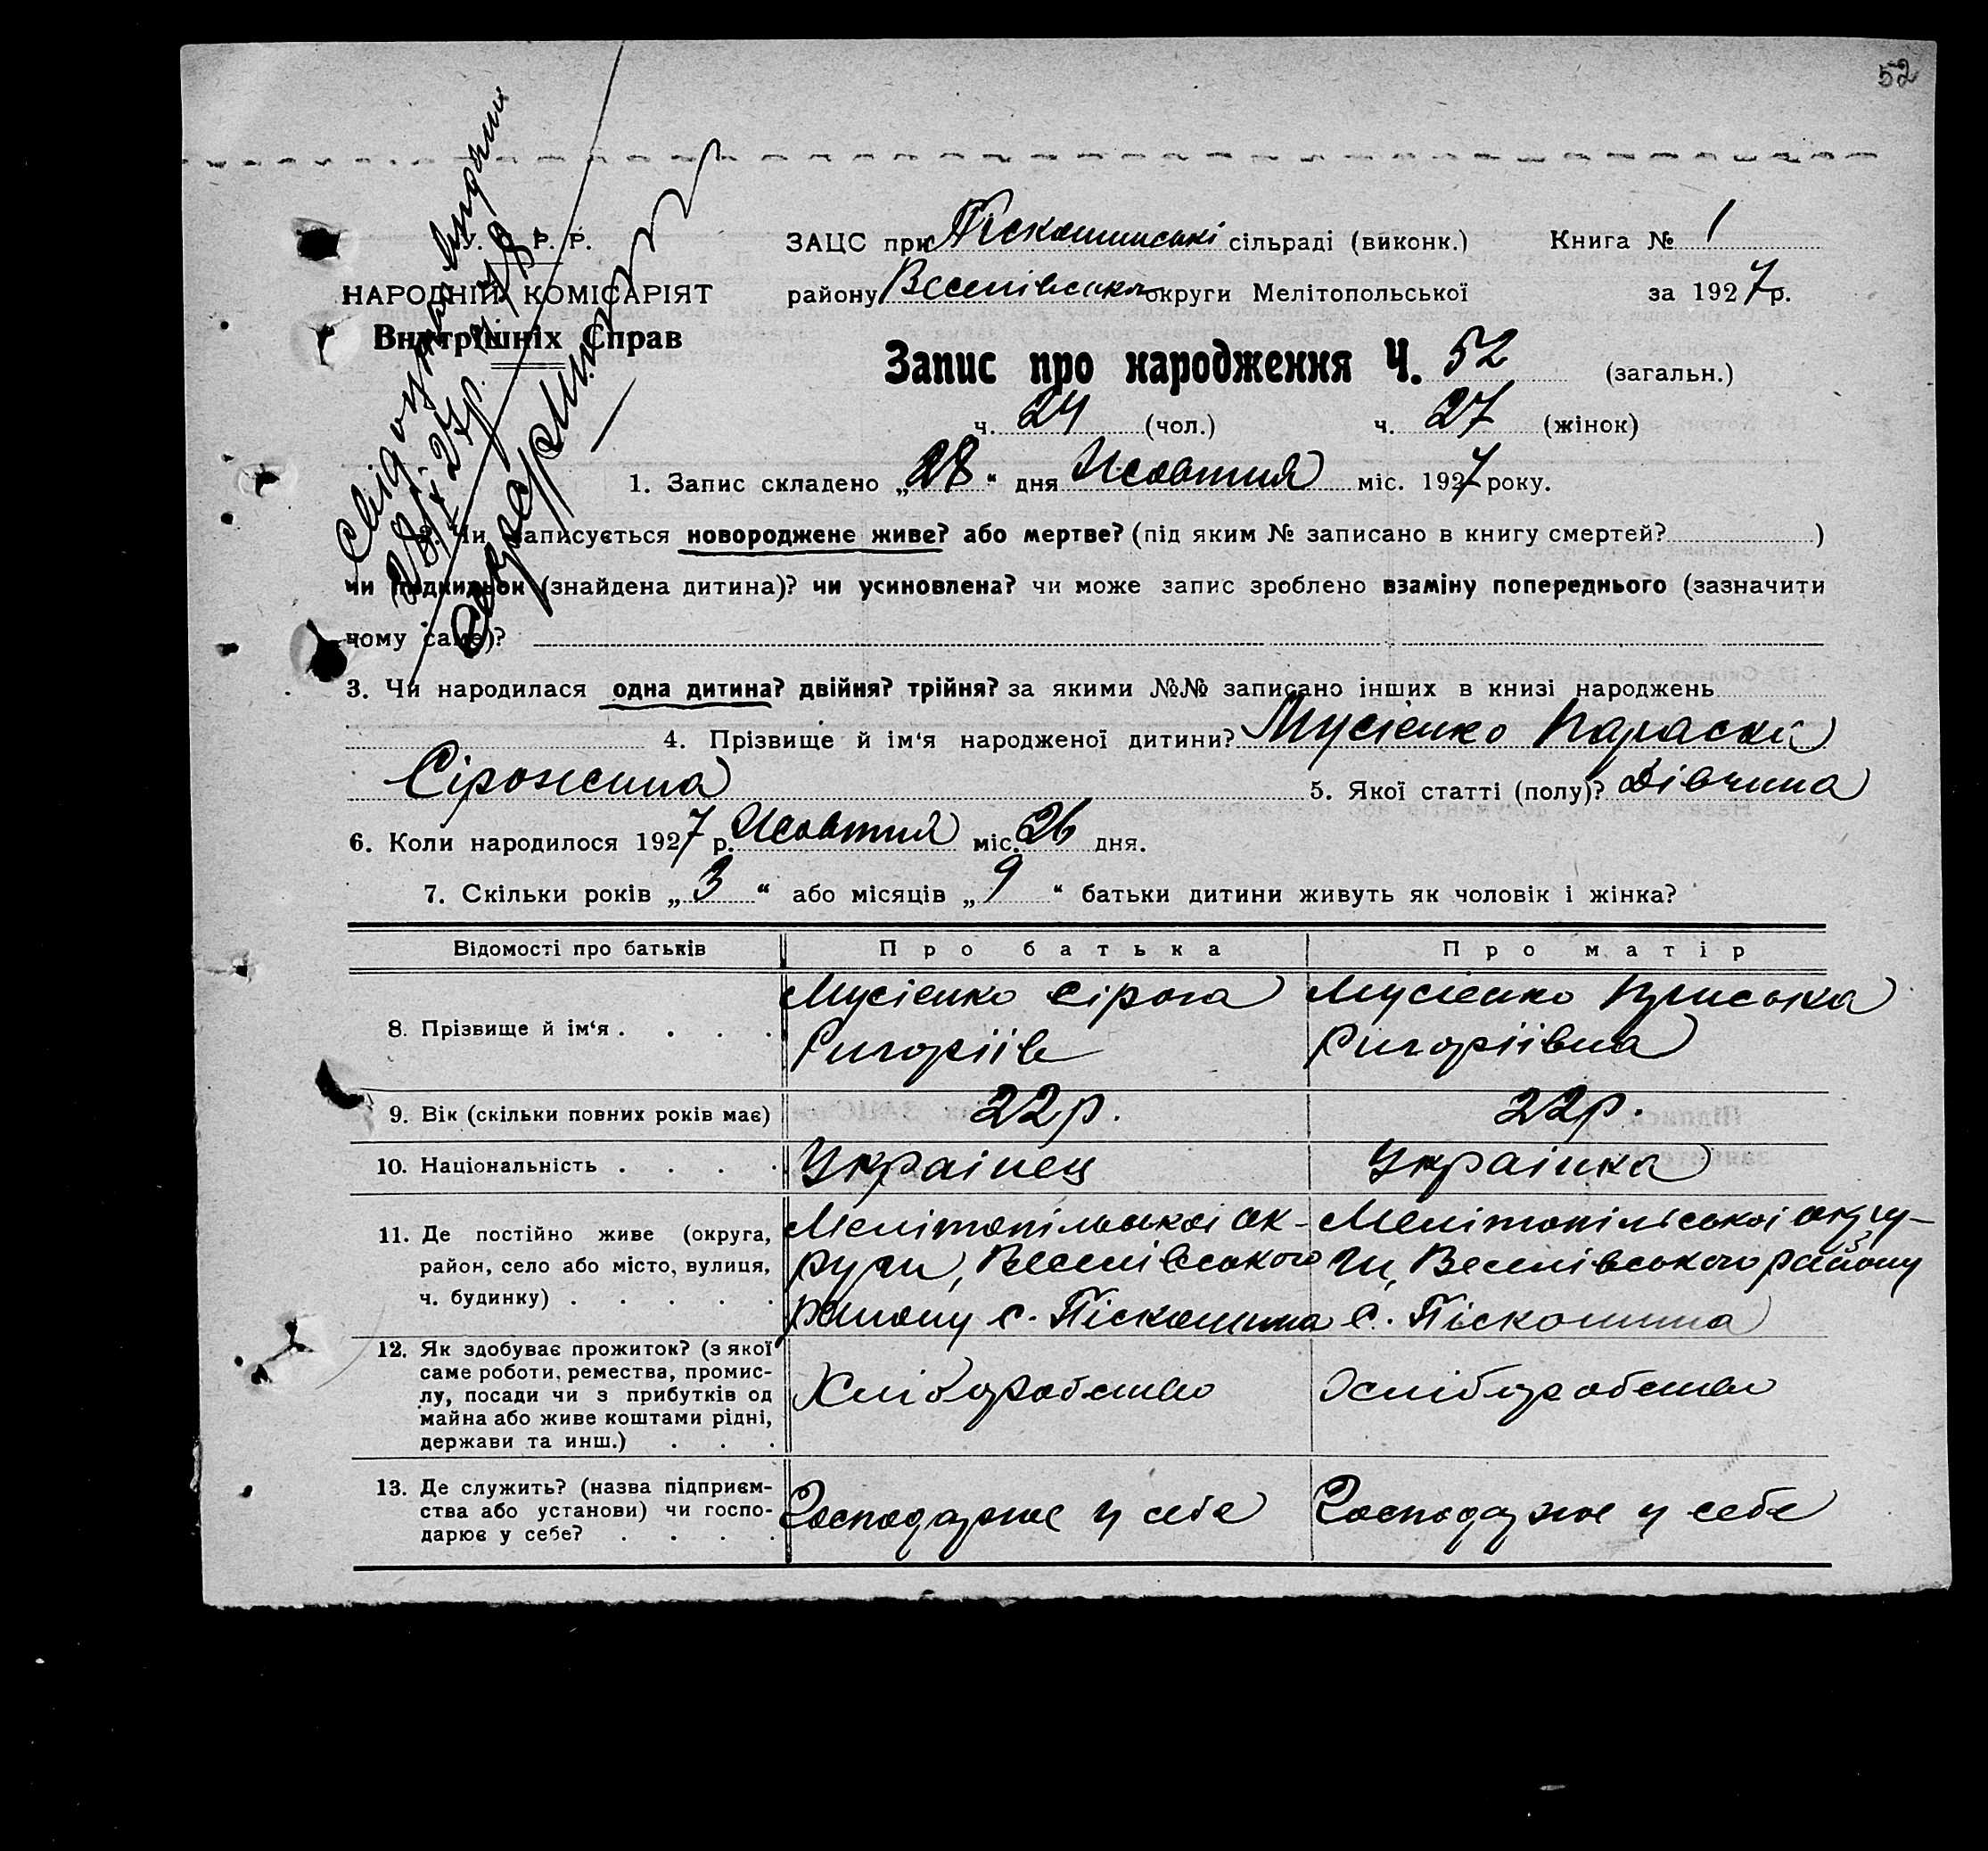 52
У. С. Р. Р.
НАРОДНІЙ КОМІСАРІЯТ
Внутрішніх Справ
28/X 27р.
ЗАЦС при Піскошинські сільраді (виконк.) Книга № 1
району Веселівсько округи Мелітопольської за 1927 р.
Запис про народження Ч. 52 (загальн.)
ч. 24 (чол.) ч. 27 (жінок)
1. Запис складено „28“ дня Жовтня міс. 1927 року.
2. Чи записується новороджене живе? або мертве? (під яким № записано в книгу смертей? )
чи підкидьок (знайдена дитина)? чи усиновлена? чи може запис зроблено взаміну попереднього (зазначити
чому саме)?
3. Чи народилася одна дитина? двійня? трійня? за якими №№ записано інших в книзі народжень
4. Прізвище й ім‘я народженої дитини? Мусієнко Параска
Сірожина 5. Якої статті (полу)? Дівчина
6. Коли народилося 1927 р. Жовтня міс. 26 дня.
7. Скільки років „3“ або місяців „9“ батьки дитини живуть як чоловік і жінка?
Відомості про батьків Про батька Про матір
8. Прізвище й ім‘я . . . . Мусієнко Сірога Мусієнко
Григоріїв Григоріївна
9. Вік (скільки повних років має) 22р. 22р.
10. Національність . . . . Українец Українка
11. Де постійно живе (округа, Мелітопільської ок- Мелітопільської окру-
район, село або місто, вулиця, руги, Веселівського ги, Веселівського району
ч. будинку) . . . . . району с. Піскошина с. Піскошина
12. Як здобуває прожиток? (з якої
саме роботи, ремества, промис-
лу, посади чи з прибутків од Хліборобство Хліборобство
майна або живе коштами рідні,
держави та инш.) . . .
13. Де служить? (назва підприєм-
ства або установи) чи госпо- Господарює у себе Господарює у себе
дарює у себе? . . . .